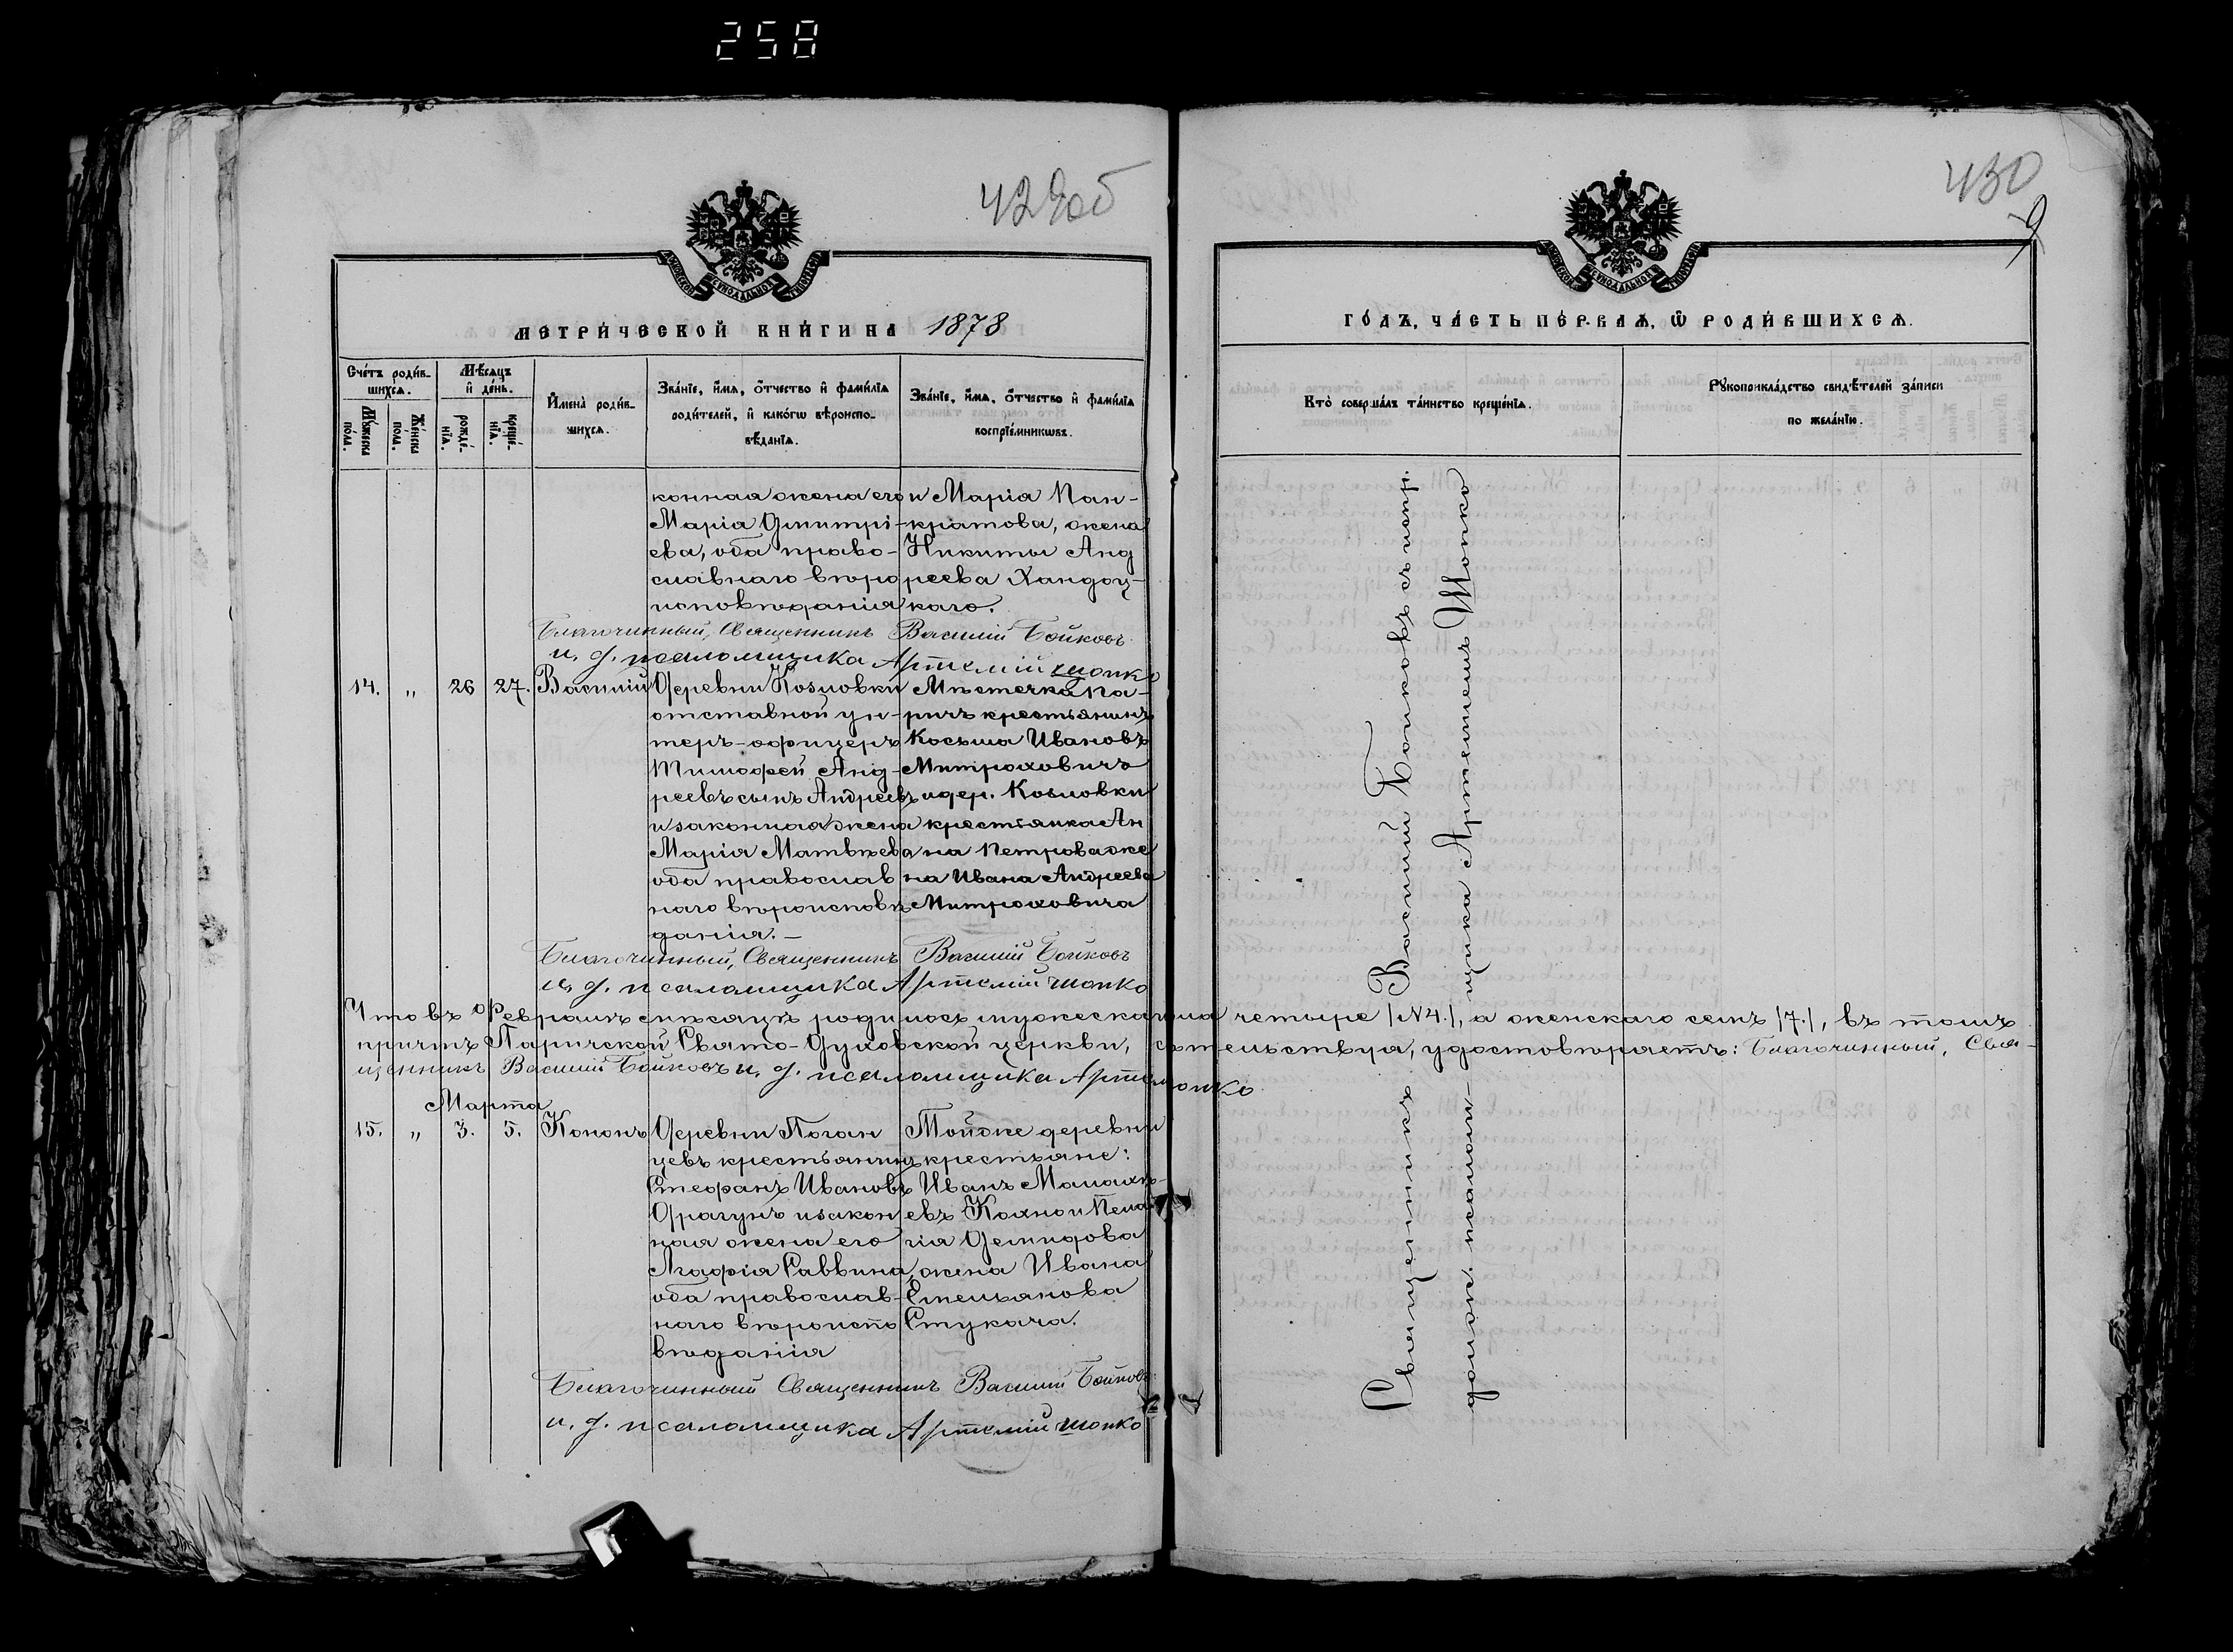 258
429об
МОСКОВСКОЙ СѴНОДАЛЬНОЙ ТИПОГРАФІИ
МЕТРИ́ЧЕСКОЙ КНИ́ГИ НА 1878
Сче́тъ роди́в-
шихсѧ.
Мꙋ́жеска
по́ла.
Же́нска
по́ла.
Мѣ́сѧцъ
и҆ де́нь.
рожде́-
нїѧ.
креще́-
нїѧ.
И҆мена̀ роди́в-
шихсѧ.
Зва́нїе, и҆́мѧ, ѻ҆́тчество и҆ фами́лїѧ
роди́телей, и҆ како́гѡ вѣроиспо-
вѣ́данїѧ.
Зва́нїе, и҆́мѧ, ѻ҆́тчество и҆ фами́лїѧ
воспрїе́мникѡвъ.
конная жена его
Марія Дмитрі-
ева, оба право-
славнаго вѣро
исповѣданія
и Марія Пан-
кратова, жена
Никиты Анд
реева Хандоц-
каго.
Благочинный, Священникъ Василій Бойковъ
и. д. псаломщика Артемій Шопко
14. „ 26 27. Василій
Деревни Козловки
отставной ун-
теръ-офицеръ
Тимофей Анд-
реевъ сынъ Андреевъ
и законная жена
Марія Матвѣева
оба православ
наго вѣроисповѣ
данія.—
Мѣстечка Па-
ричъ крестьянинъ
Косьма Ивановъ
Митроховичъ
и дер. Козловки
крестьянка Ан
на Петрова же
на Ивана Андреева
Митроховича
Благочинный, Священникъ Василій Бойковъ
и. д. псаломщика Артемій Шопко
Что въ Февралѣ мѣсяцѣ родилось мужеска пола четыре /№4./, а женскаго семь /7./, въ томъ
причтъ Паричской Свято-Духовской церкви, свѣтельствуя, удостовѣряетъ: Благочинный, Свя-
щенникъ Василій Бойковъ и. д. псаломщика Артемій Шопко
Марта
15. „ 3. 5. Кононъ
Деревни Поган
цевъ крестьянинъ
Стефанъ Ивановъ
Драгунъ и закон
ная жена его
Агафія Саввина,
оба православ-
наго вѣроиспо
вѣданія
Той же деревни
крестьяне:
Иванъ Малахѣ-
евъ Кохно и Пела
гія Демидова
жена Ивана
Емельянова
Стукача.
Благочинный Священникъ Василій Бойковъ
и. д. псаломщика Артемій Шопко
430
МОСКОВСКОЙ СѴНОДАЛЬНОЙ ТИПОГРАФІИ
ГО́ДЪ, ЧА́СТЬ ПЕ́РВАѦ, Ѽ РОДИ́ВШИХСѦ.
Кто̀ соверша́лъ та́инство креще́нїѧ.
Рꙋкоприкла́дство свидѣ́телей за́писи
по жела́нїю.
Священникъ Василій Бойковъ съ испр.
должн. псалом-щика Артемiемъ Шопко